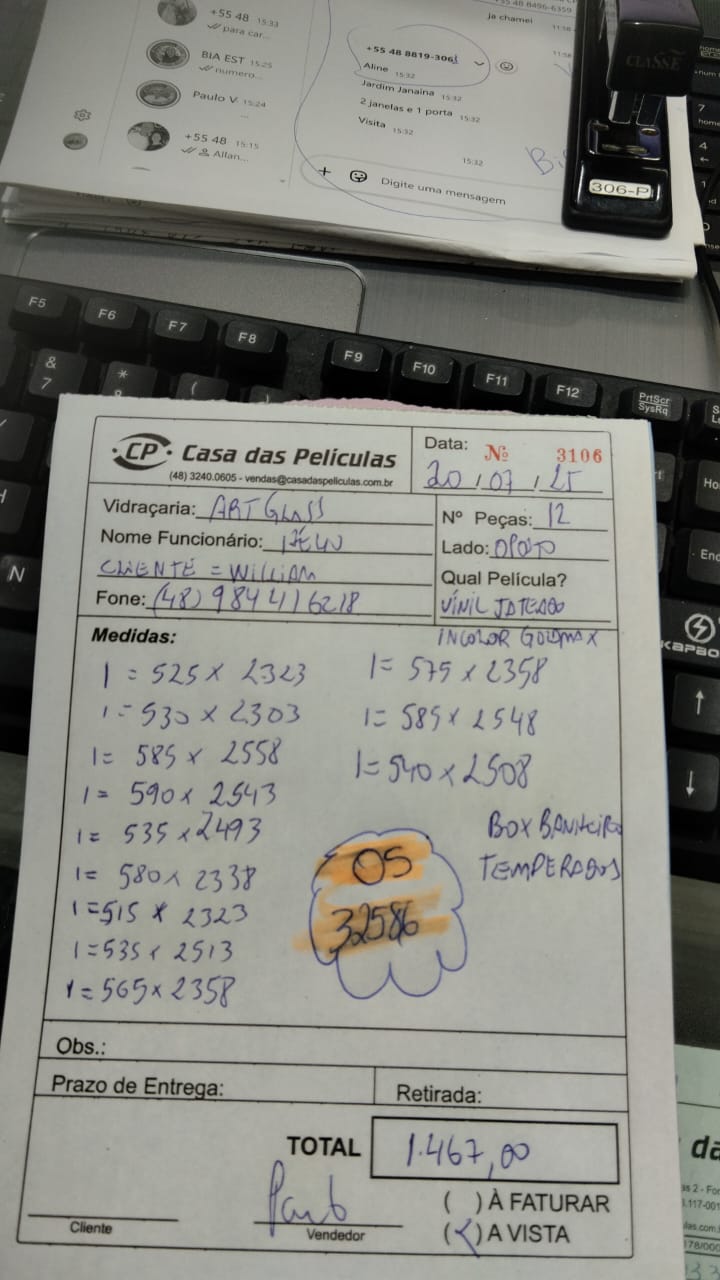 +55 48 15:33
para car...
BIA EST 15:25
numero...
Paulo V. 15:24
...
+55 48 15:15
Allan...
+55 48 8496-6359
ja chamei 11:58
11:58
+55 48 8819-306
Aline 15:32
Jardim Janaina 15:32
2 janelas e 1 porta 15:32
Visita 15:32
15:32
+ Digite uma mensagem
CLASSE
306-P
F5 F6 F7 F8 F9 F10 F11 F12 PrtScr SysRq
& 7 * (
N
End
KAPBO
CP Casa das Películas
(48) 3240.0605 - vendas@casadaspeliculas.com.br
Data: Nº 3106
20/07/25
Vidraçaria: ART GLASS
Nº Peças: 12
Nome Funcionário:
Lado: OPOSTO
CLIENTE = WILLIAM
Qual Película?
Fone: (48) 984416218
VÍNIL JATEADO
INCOLOR GOLDMAX
Medidas:
1 = 525 x 2323
1 = 575 x 2358
1 = 530 x 2303
1 = 585 x 2548
1 = 585 x 2558
1 = 540 x 2508
1 = 590 x 2543
1 = 535 x 2493
BOX BANHEIRO
TEMPERADOS
1 = 580 x 2338
1 = 515 x 2323
1 = 535 x 2513
1 = 565 x 2358
OS
32586
Obs.:
Prazo de Entrega:
Retirada:
TOTAL 1.467,00
( ) À FATURAR
( ) A VISTA
Cliente
Vendedor